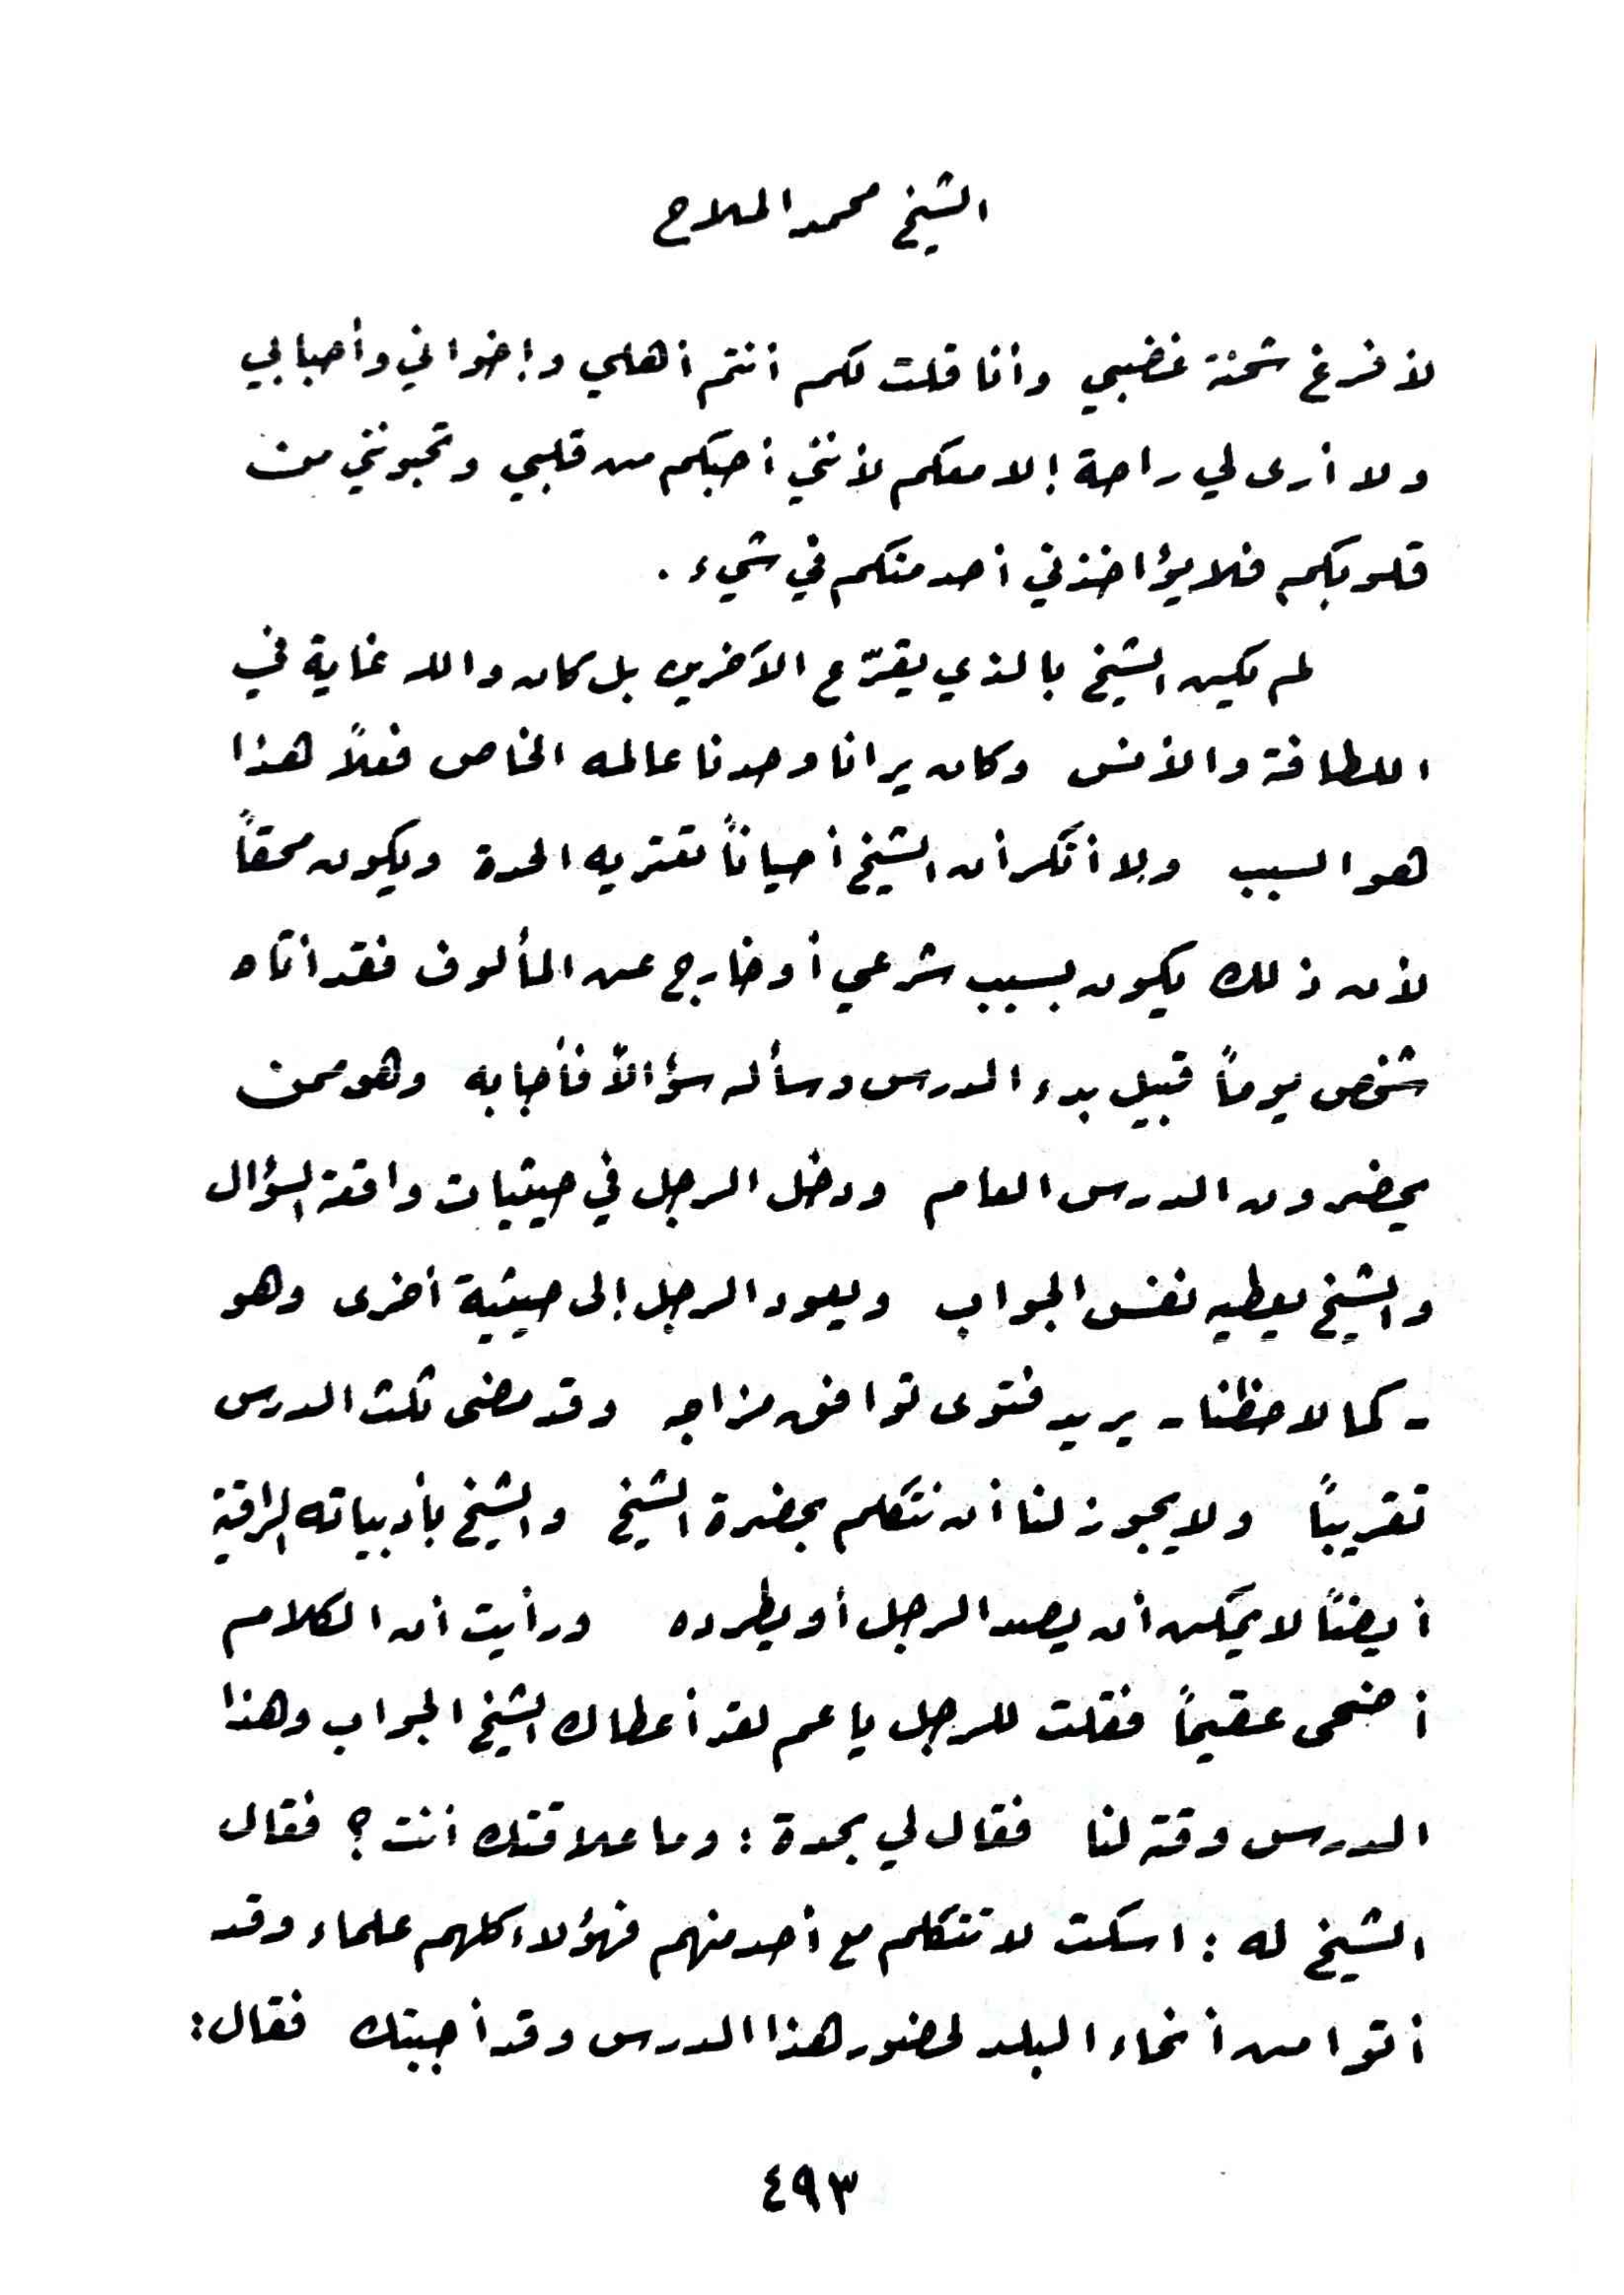 الشيخ محمد الملاح
لأفرغ شحنة غضبي وأنا قلت لكم أنتم أهلي وإخواني وأحبابي
ولا أرى لي راحة إلا معكم لأنني أحبكم من قلبي وتحبونني من
قلوبكم فلا يؤاخذني أحد منكم في شيء .
لم يكن الشيخ بالذي يقرّع الآخرين بل كان والله غاية في
اللطافة والأنس وكان يرانا وحدنا عالمه الخاص فعلاً هذا
هو السبب ولا أنكر أن الشيخ أحياناً تعتريه الحدة ويكون محقاً
لأن ذلك يكون بسبب شرعي أو خارج عن المألوف فقد أتاه
شخص يوماً قبيل بدء الدرس وسأله سؤالاً فأجابه وهو ممن
يحضرون الدرس العام ودخل الرجل في حيثيات واقعة السؤال
والشيخ يعطيه نفس الجواب ويعود الرجل إلى حيثية أخرى وهو
- كما لاحظنا - يريد فتوى توافق مزاجه وقد مضى ثلث الدرس
تقريباً ولا يجوز لنا أن نتكلم بحضرة الشيخ والشيخ بأدبياته الراقية
أيضاً لا يمكن أن يصد الرجل أو يطرده ورأيت أن الكلام
أضحى عقيماً فقلت للرجل يا عم لقد أعطاك الشيخ الجواب وهذا
الدرس وقته لنا فقال لي بحدة : وما علاقتك أنت ؟ فقال
الشيخ له : اسكت لا تتكلم مع أحد منهم فهؤلاء كلهم علماء وقد
أتوا من أنحاء البلد لحضور هذا الدرس وقد أجبتك فقال :
٤٩٣